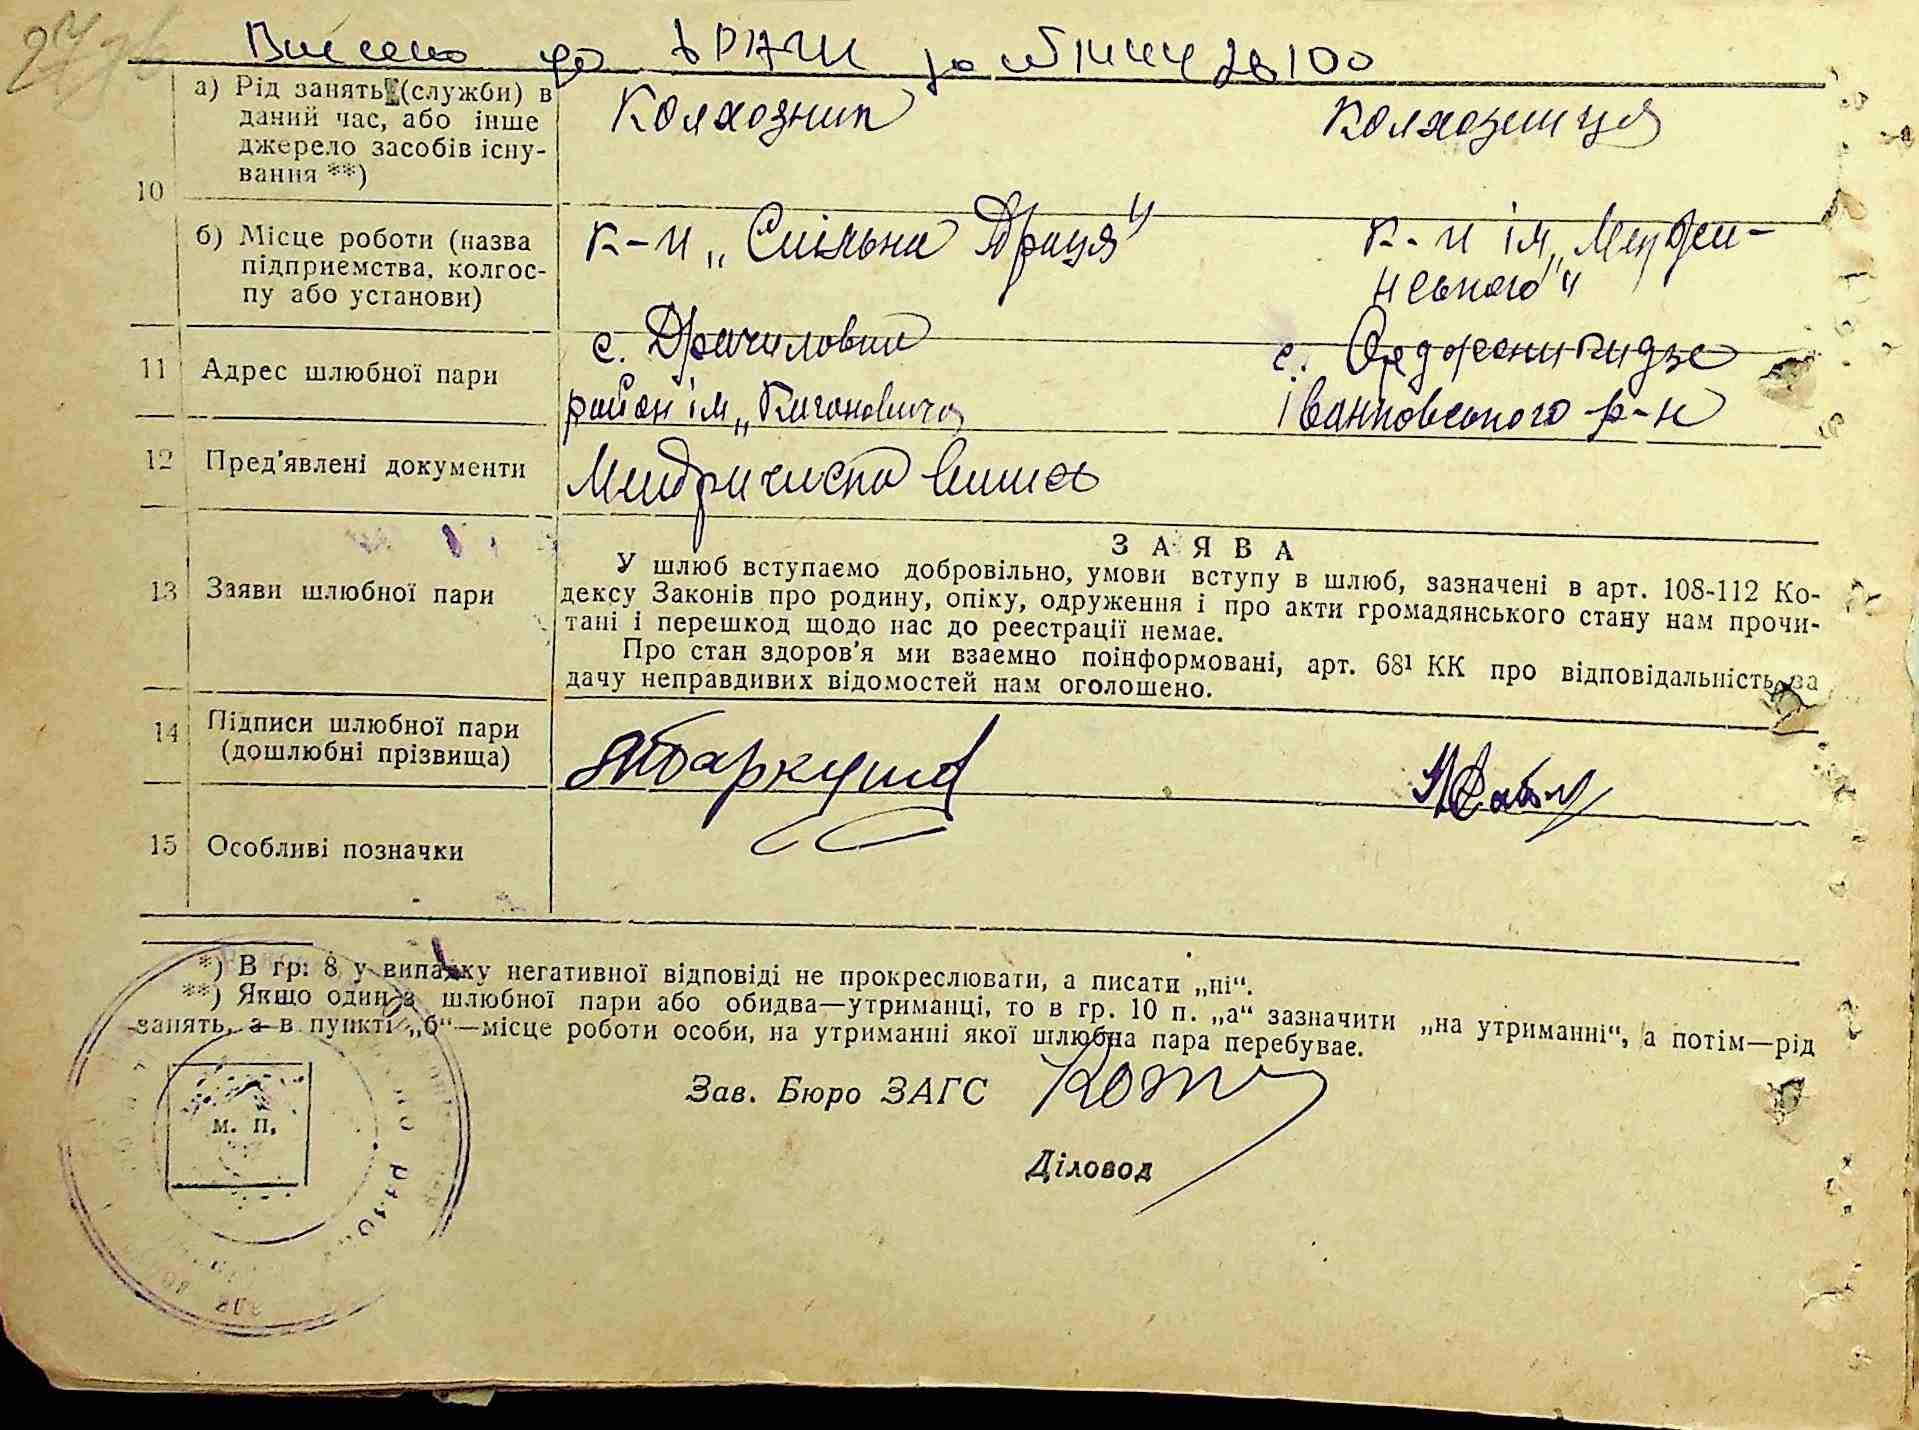 Внесено до ДРАЦС за №
а) Рід занять (службu) в Колхозник Колхозниця
даний час, або інше
джерело засобів існу-
вання **)
10
б) Місце роботи (назва к-п „Спільна Праця" к-п ім „Менжин-
підприємства, колгос- ського"
пу або установи)
11 Адрес шлюбної пари с. с. Орджоникидзе
район ім „Кагановича Іванковського р-н
12 Пред'явлені документи
З А Я В А
У шлюб вступаємо добровільно, умови вступу в шлюб, зазначені в арт. 108-112 Ко-
13 Заяви шлюбної пари дексу Законів про родину, опіку, одруження і про акти громадянського стану нам прочи-
тані і перешкод щодо нас до реєстрації немає.
Про стан здоров'я ми взаємно поінформовані, арт. 68¹ КК про відповідальність за
дачу неправдивих відомостей нам оголошено.
14 Підписи шлюбної пари
(дошлюбні прізвища)
15 Особливі позначки
*) В гр. 8 у випадку негативної відповіді не прокреслювати, а писати „ні“.
**) Якщо один з шлюбної пари або обидва—утриманці, то в гр. 10 п. „а“ зазначити „на утриманні“, а потім—рід
занять, а в пункті „б“—місце роботи особи, на утриманні якої шлюбна пара перебуває.
Зав. Бюро ЗАГС
м. п.
Діловод